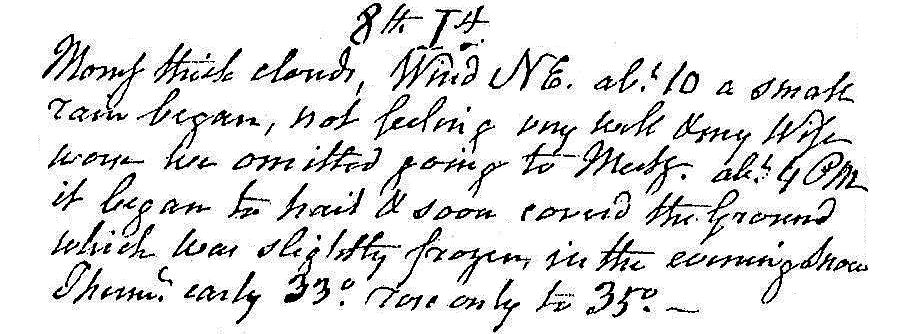 8th I4
Morng thick clouds, Wind NE. abt. 10 a small
rain began, not feeling very well & my Wife
worse we omitted going to Meetg. abt. 4 PM
it began to hail & soon coverd the Ground
which was slightly frozen, in the evening Snow
Thermr. early 33°. rose only to 35°. —